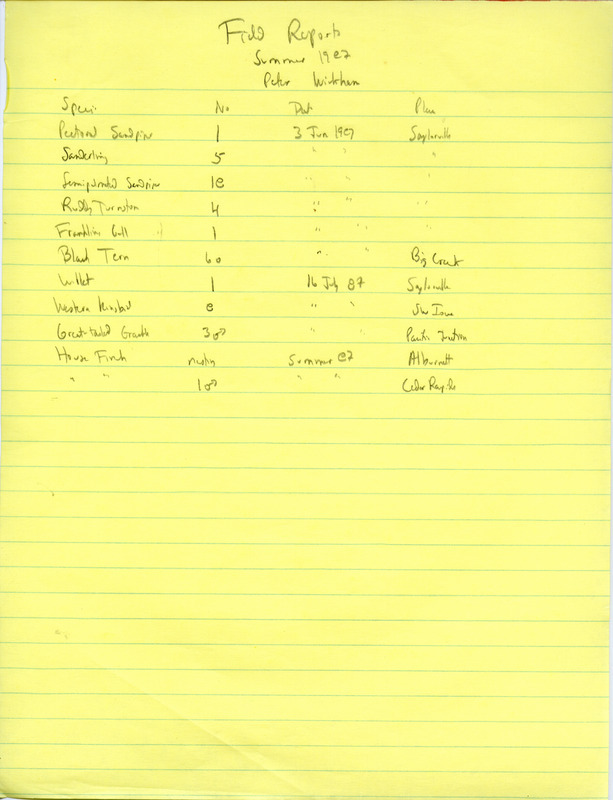 Field Reports
Summer 1987
Peter Wickham
Species No Date Place
Pectoral Sandpiper 1 3 Jun 1987 Saylorville
Sanderling 5 " " "
Semipalmated Sandpiper 18 " " "
Ruddy Turnstone 4 " " "
Franklins Gull 1 " " "
Black Tern 60 " " Big Creek
Willet 1 16 July 87 Saylorville
Western Kingbird 8 " " SW Iowa
Great-tailed Grackle " " Pacific Junction
House Finch nesting Summer 87 Alburnett
" " " " Cedar Rapids